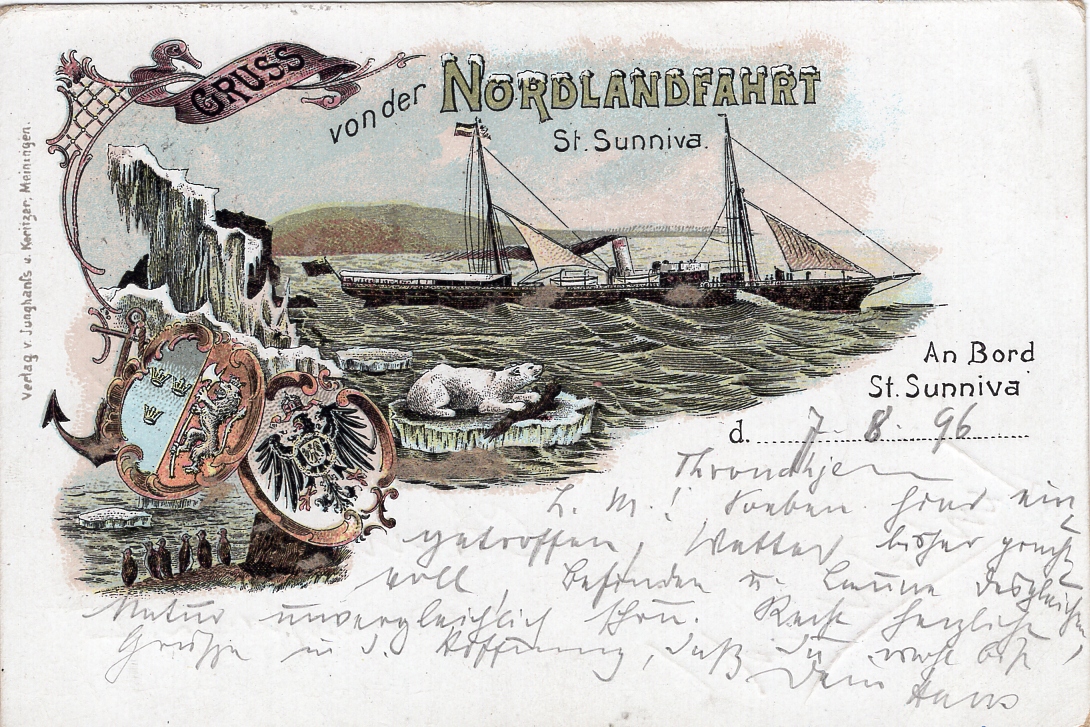 GRUSS
von der NORDLANDFAHRT
St. Sunniva.
Verlag v. Junghanss u. Koritzer, Meiningen.
An Bord
St. Sunniva
d. 7. 8. 96
Throndhjem
L. M.! Soeben hier ein
getroffen, Wetter bisher pracht
voll, Befinden u. Laune desgleichen,
Natur unvergleichlich schön. Recht herzliche
Grüße in d. Hoffnung, daß Du wohl bist,
Dein Hans